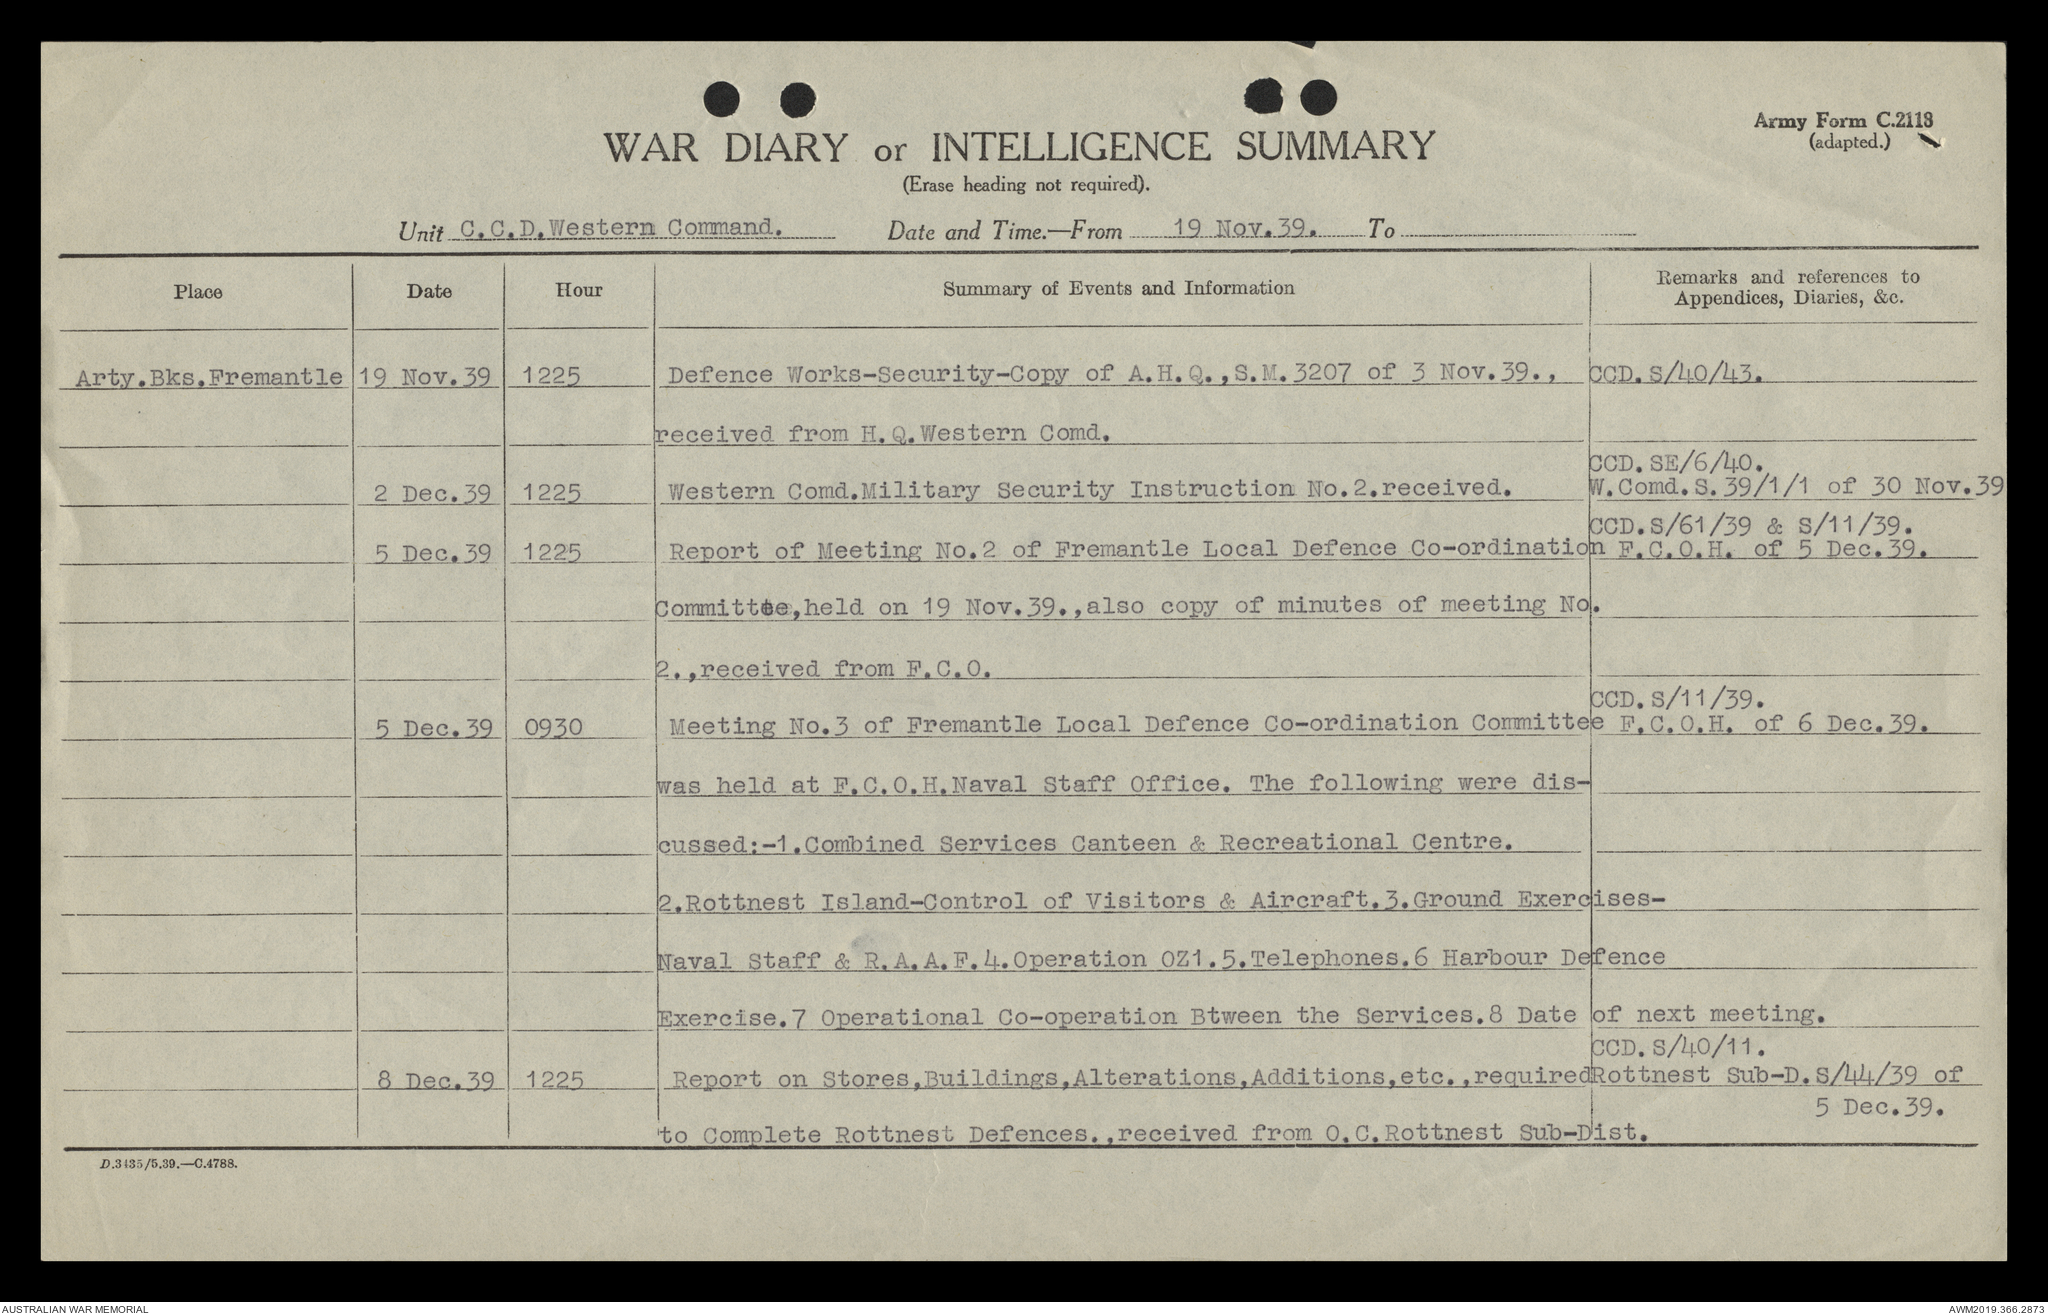 Army Form C.2118
(adapted.)
WAR DIARY or INTELLIGENCE SUMMARY
(Erase heading not required).
Unit C.C.D.Western Command. Date and Time.—From 19 Nov.39. To
Place Date Hour Summary of Events and Information Remarks and references to
Appendices, Diaries, &c.
Arty.Bks.Fremantle 19 Nov.39 1225 Defence Works-Security-Copy of A.H.Q.,S.M.3207 of 3 Nov.39., CCD.S/40/43.
received from H.Q.Western Comd.
CCD.SE/6/40.
2 Dec.39 1225 Western Comd.Military Security Instruction No.2.received. W.Comd.S.39/1/1 of 30 Nov.39
CCD.S/61/39 & S/11/39.
5 Dec.39 1225 Report of Meeting No.2 of Fremantle Local Defence Co-ordination F.C.O.H. of 5 Dec.39.
Committee,held on 19 Nov.39.,also copy of minutes of meeting No.
2.,received from F.C.O.
CCD.S/11/39.
5 Dec.39 0930 Meeting No.3 of Fremantle Local Defence Co-ordination Committee F.C.O.H. of 6 Dec.39.
was held at F.C.O.H.Naval Staff Office. The following were dis-
cussed:-1.Combined Services Canteen & Recreational Centre.
2.Rottnest Island-Control of Visitors & Aircraft.3.Ground Exercises-
Naval Staff & R.A.A.F.4.Operation OZ1.5.Telephones.6 Harbour Defence
Exercise.7 Operational Co-operation Btween the Services.8 Date of next meeting.
CCD.S/40/11.
8 Dec.39 1225 Report on Stores,Buildings,Alterations,Additions,etc.,required Rottnest Sub-D.S/44/39 of
5 Dec.39.
to Complete Rottnest Defences.,received from O.C.Rottnest Sub-Dist.
D.3435/5.39.—C.4788.
AUSTRALIAN WAR MEMORIAL AWM2019.366.2873